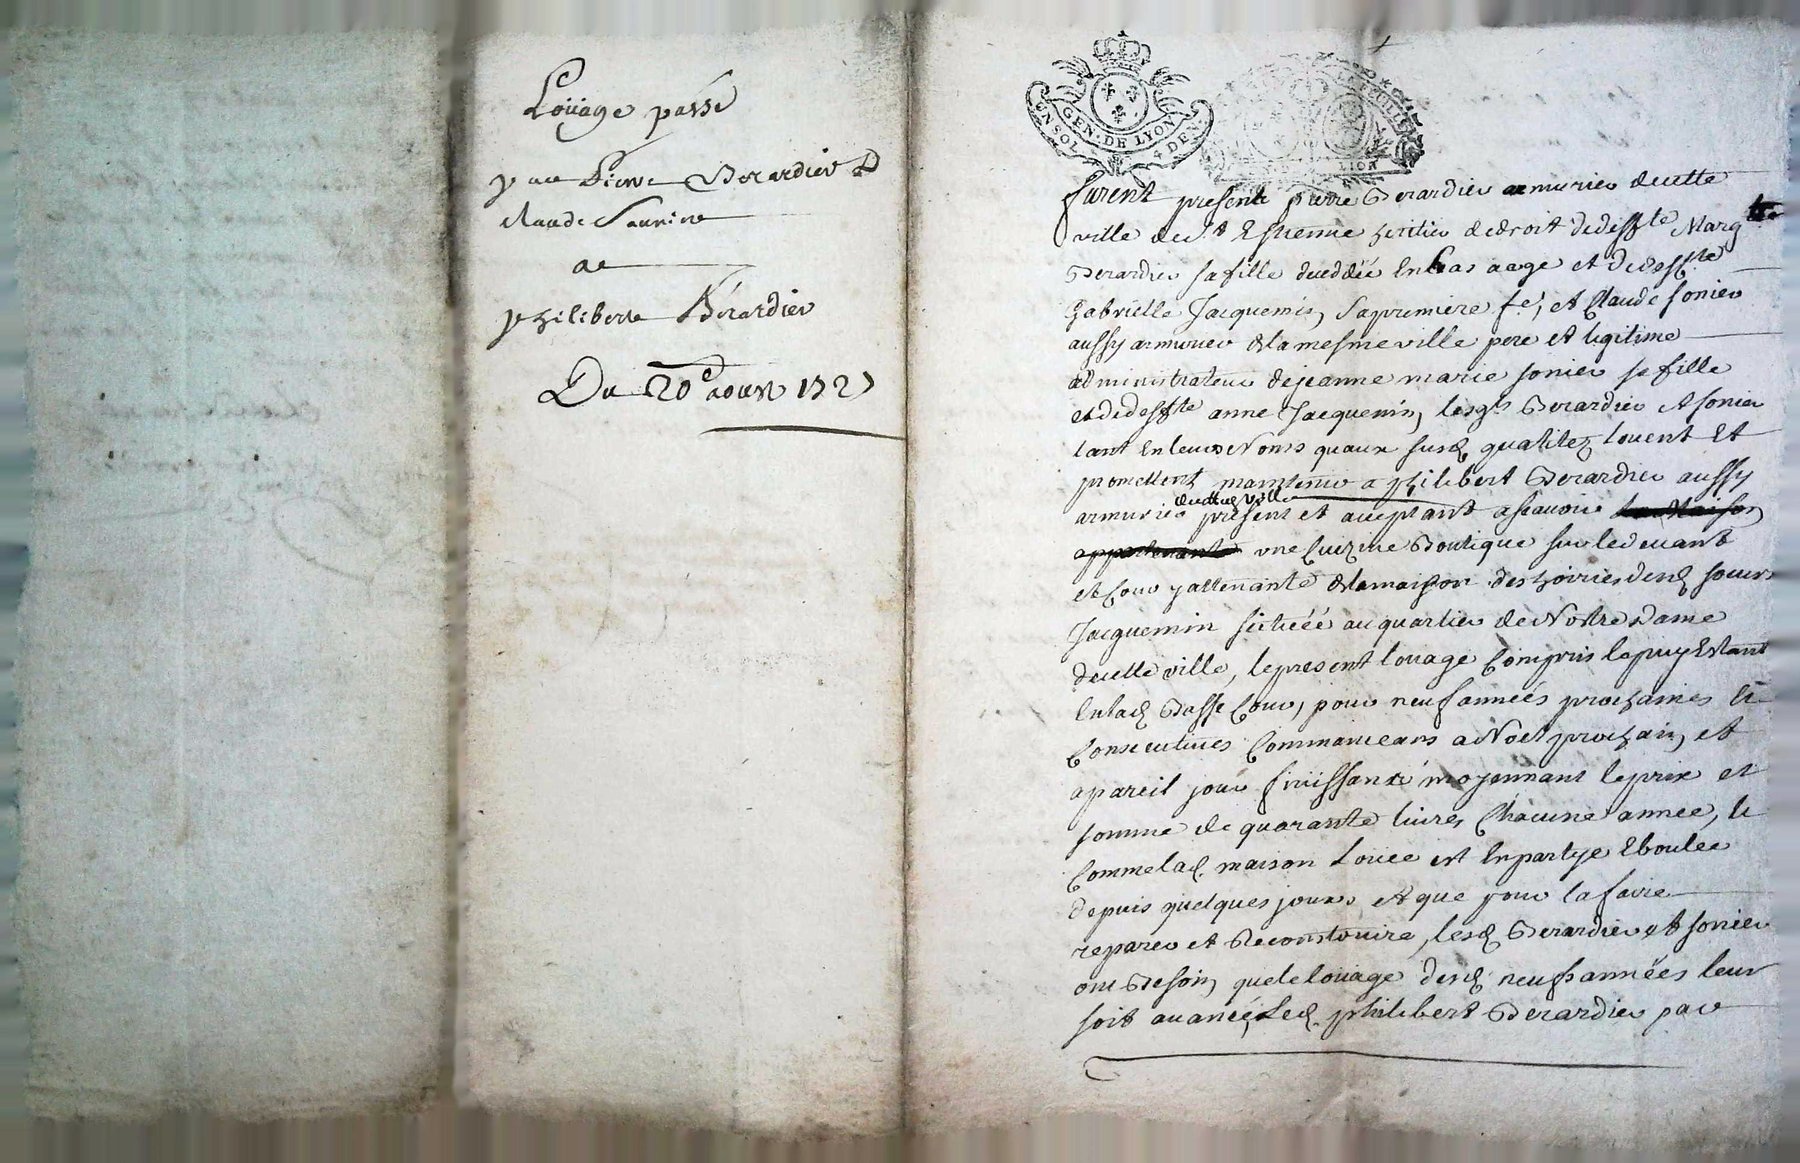 Loüage passé
par Pierre Berardier &
Claude Saunier
a
philibert Bérardier
Du 20e aoust 1727
GEN. DE LYON
EN SOL 4 DEN.
furent presents pierre Berardier armurier de cette
ville de St Estienne heritier de droit de deffte Margte
Berardier sa fille decedée En bas aage et de deffte
Gabrielle Jacquemin, sa premiere fe, et Claude sonier
aussy armurier de la mesme ville pere et legitime
administrateur de jeanne marie sonier sa fille
et de deffte anne Jacquemin, lesqls Berardier et sonier
tant En leurs Noms qu'aux susd qualitez louent Et
promettent maintenir a philibert Berardier aussy
armurier de cette ville present et acceptant ascavoir la Maison
appartenante une Cuizine Boutique sur le devant
et Cour y attenante de la maison des hoiries desd soeurs
Jacquemin scituéé au quartier de Nostre Dame
de cette ville, le present louage Compris le puy Estant
En lad Basse Cour, pour neuf années prochaines Et
Consecutives Commanceans a Noel prochain, et
a pareil jour finissant moyennant le prix et
somme de quarante livres Chacune année, Et
Comme lad. maison Louée est En partye Eboulee
depuis quelques jours et que pour la faire
reparer et Reconstruire, lesd Berardier et sonier
ont Besoin, que le loüage desd neuf années leur
soit avancé, Led. philibert Berardier par